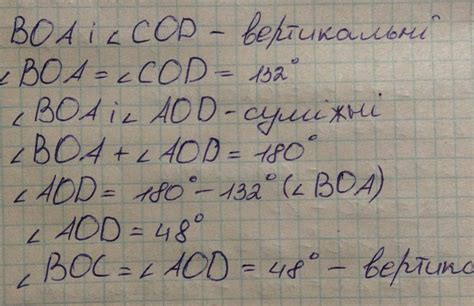 BOA і ∠ COD - вертикальні
∠ BOA = ∠ COD = 132°
∠ BOA і ∠ AOD - суміжні
∠ BOA + ∠ AOD = 180°
∠ AOD = 180° - 132° (∠ BOA)
∠ AOD = 48°
∠ BOC = ∠ AOD = 48° - вертика